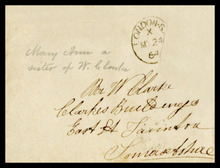 LONDON
X
64
Mary Ann a
sister of W. Clarke
Mr W Clarke
Clarkes Buildings
East St Taunton
Somersetshire